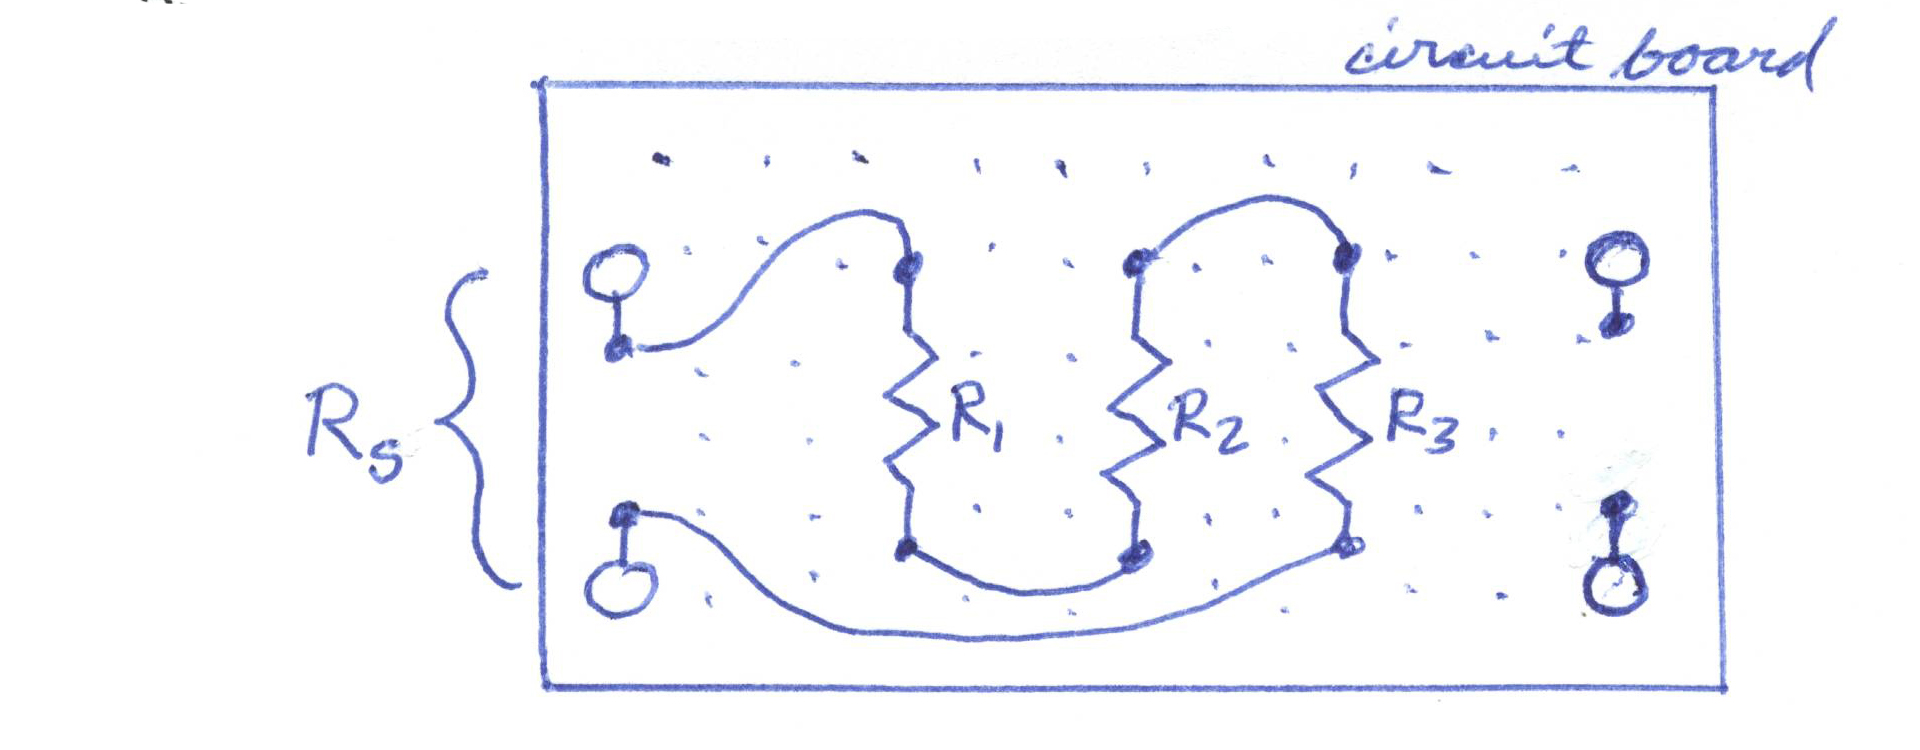 circuit board
R₁
R₂
R₃
R_S